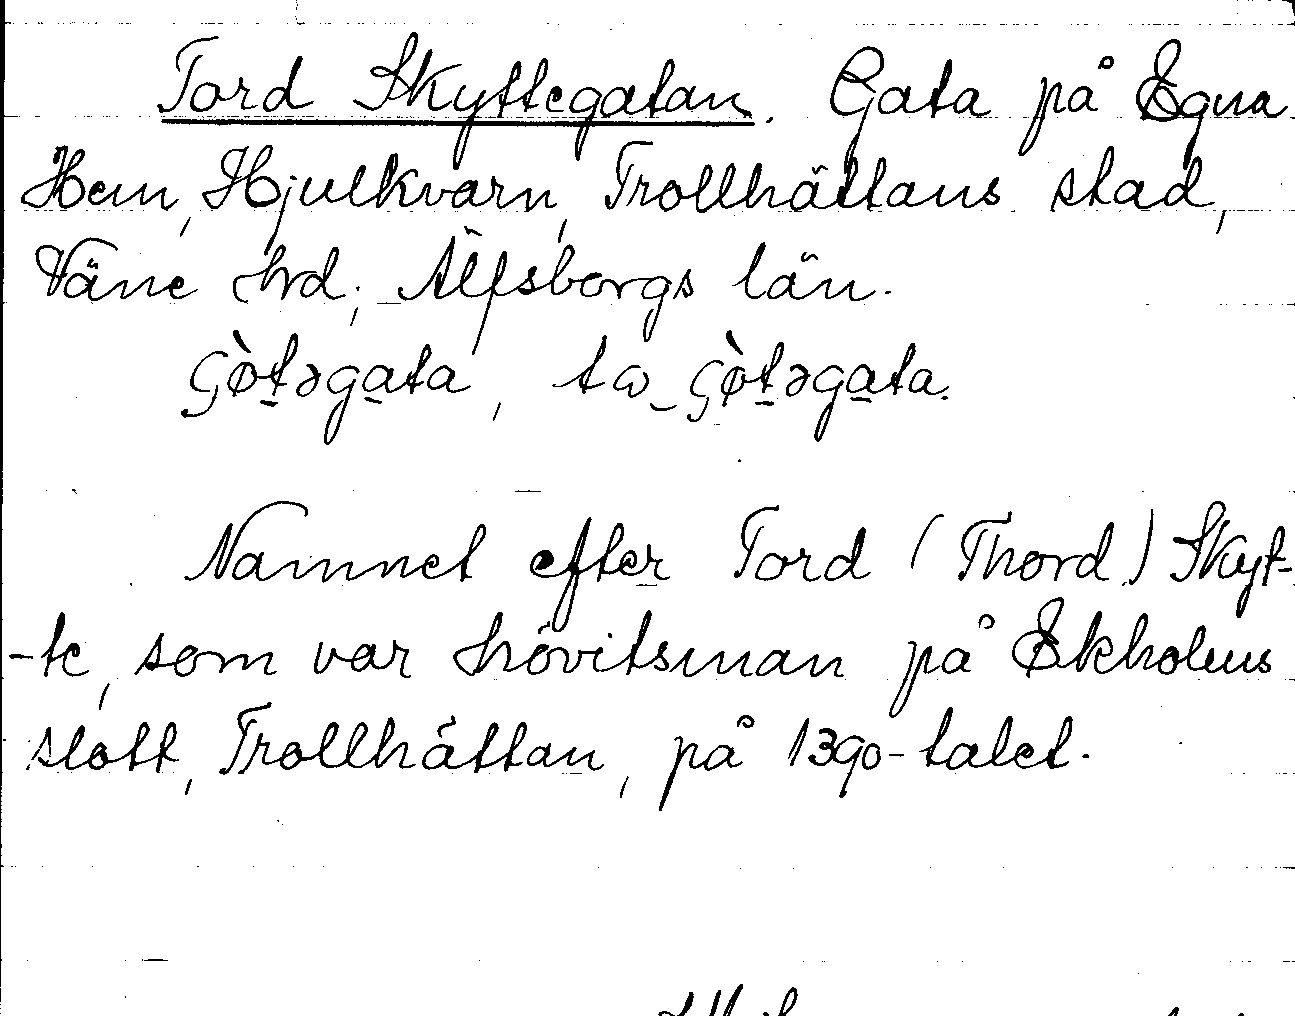 Tord Skyttegatan. Gata på Egna
Hem, Hjulkvarn, Trollhättans stad,
Väne hrd, Älfsborgs län.
ʂø̀t̲əga̲ta, tɷ‿ʂø̀t̲əga̲ta.
Namnet efter Tord (Thord) Skyt-
-te, som var hövitsman på Ekholms
slott, Trollhättan, på 1390-talet.